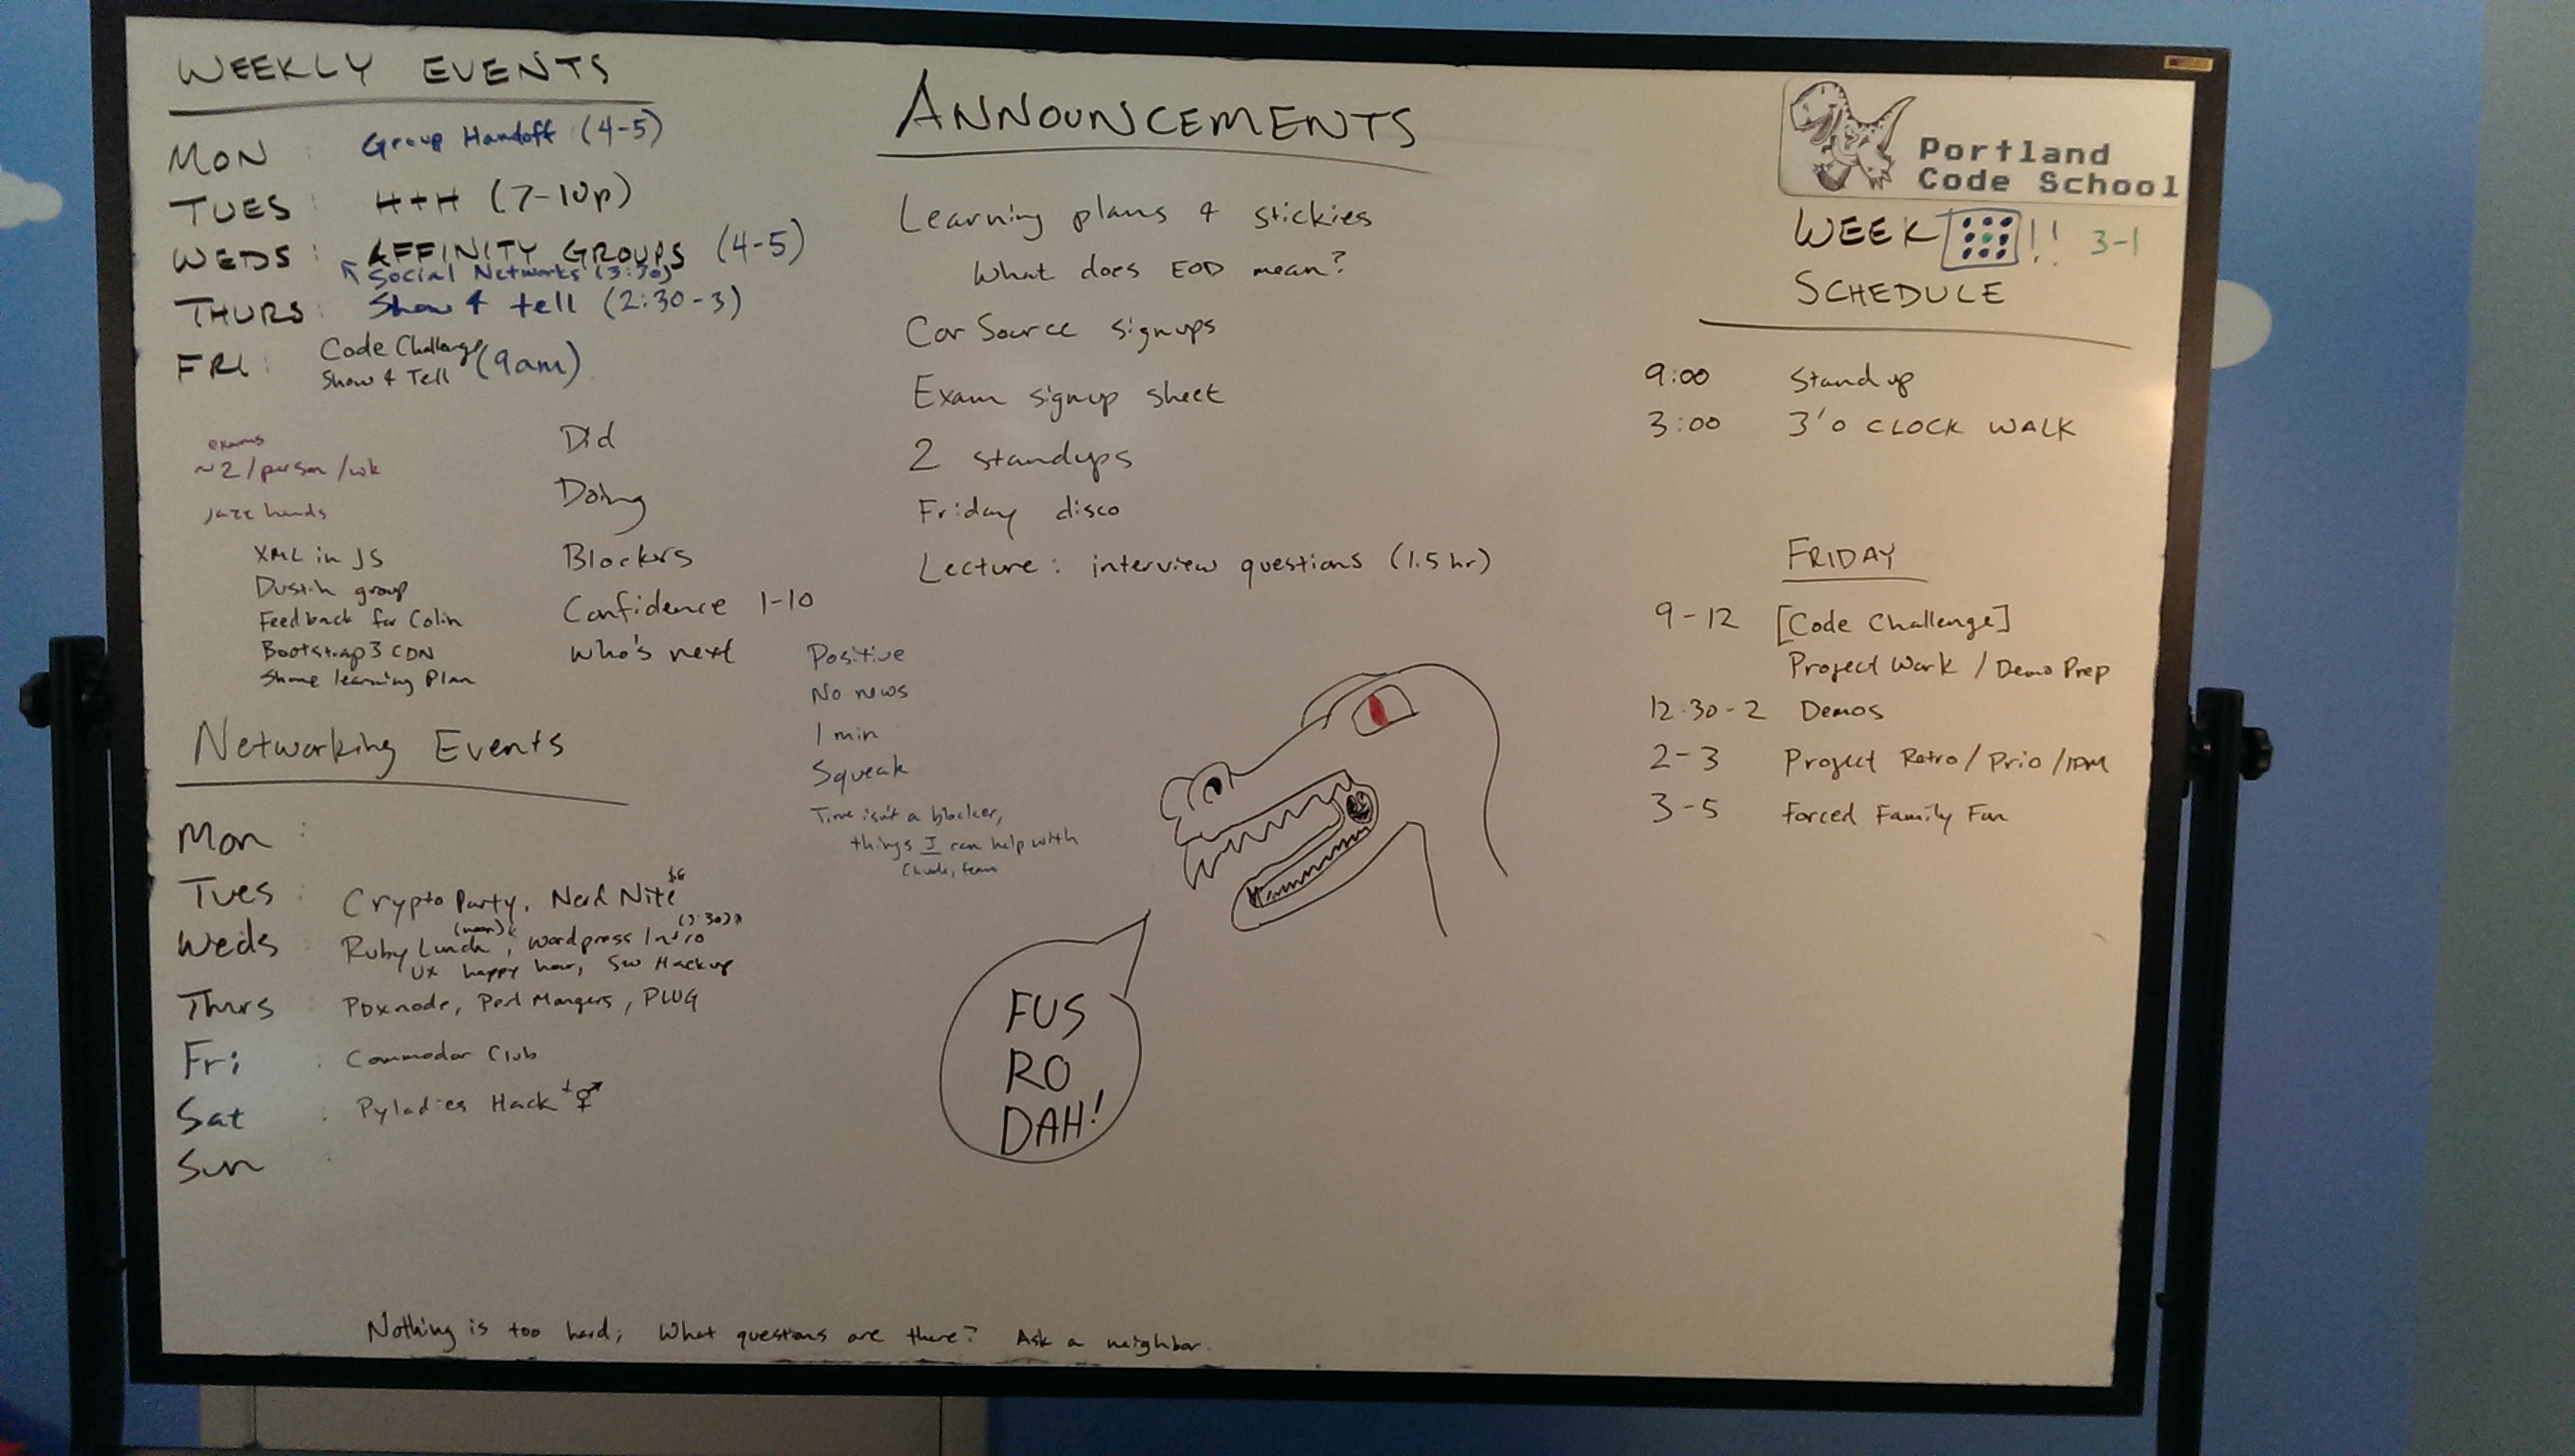 WEEKLY EVENTS
MON : Group Handoff (4-5)
TUES : H+H (7-10p)
WEDS : AFFINITY GROUPS (4-5)
Social Networks (3:30)
THURS : Show & tell (2:30-3)
FRI : Code Challenge (9am)
Show & Tell
exams
~2/person/wk
jazz hands
XML in JS
Dustin group
Feedback for Colin
Bootstrap3 CDN
learning Plan
Did
Doing
Blockers
Confidence 1-10
Who's next
Positive
No news
1 min
Squeak
Time isn't a blocker,
things I can help with
team
Networking Events
Mon :
Tues : Crypto Party, Nerd Nite $6
Weds Ruby Lunch (noon), Wordpress Intro
UX happy hour, SW Hackup
Thurs : PDXnode, Perl Mangers, PLUG
Fri : Commodor Club
Sat : Pyladies Hack + ⚥
Sun :
ANNOUNCEMENTS
Learning plans & stickies
What does EOD mean?
Car Source signups
Exam signup sheet
2 standups
Friday disco
Lecture: interview questions (1.5 hr)
FUS
RO
DAH!
Portland
Code School
WEEK !! 3-1
SCHEDULE
9:00 Standup
3:00 3'o CLOCK WALK
FRIDAY
9-12 [Code Challenge]
Project Work / Demo Prep
12:30-2 Demos
2-3 Project Retro/Prio/IPM
3-5 Forced Family Fun
Nothing is too hard; What questions are there? Ask a neighbor.